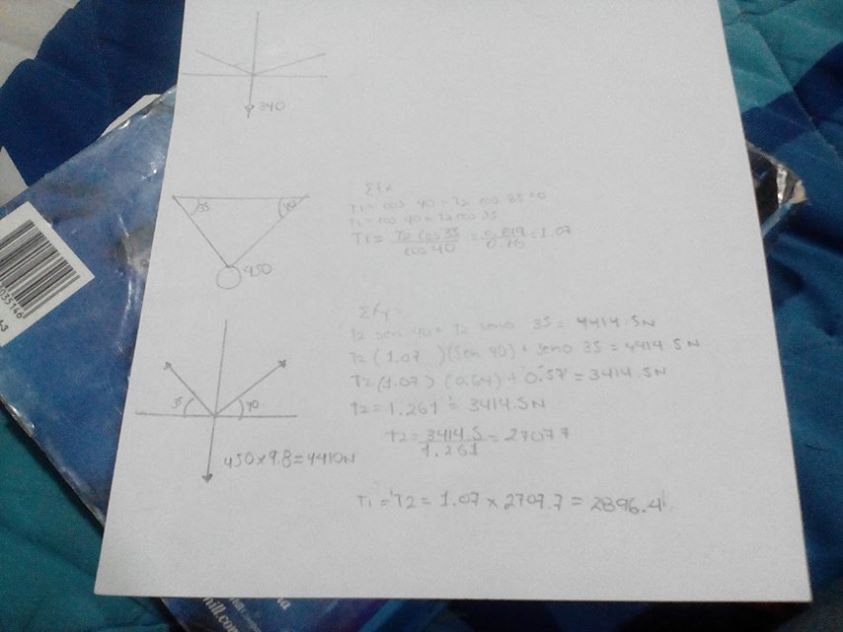 340
35
450
Σfx
T1 = cos 40 - T2 cos 35 = 0
T1 = cos 40 = T2 cos 35
T1 = T2 cos 35 / cos 40 = 0.819 / 0.76 = 1.07
Σfy =
T2 sen 40 = T2 seno 35 = 4414.5N
T2 (1.07) (sen 40) + seno 35 = 4414.5N
T2 (1.07) (0.64) + 0.57 = 3414.5N
T2 = 1.261 = 3414.5N
T2 = 3414.5 / 1.261 = 2707.7
40
450 x 9.8 = 4410N
T1 = T2 = 1.07 x 2707.7 = 2896.4
hill.com